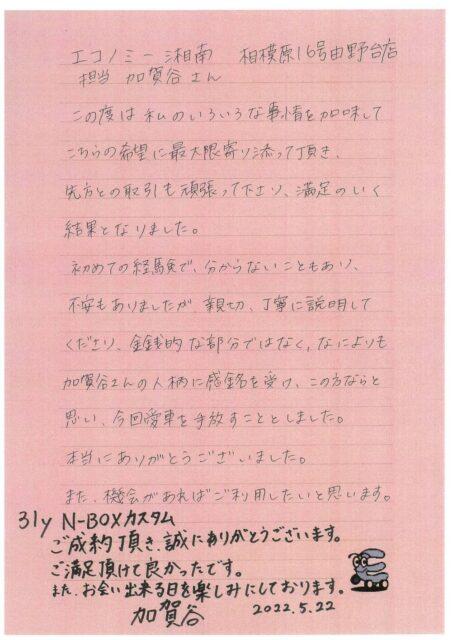 エコノミー湘南　相模原16号由野台店
担当 加賀谷さん
この度は私のいろいろな事情を加味して
こちらの希望に最大限寄り添って頂き、
先方との取引も頑張って下さり、満足のいく
結果となりました。
初めての経験で、分からないこともあり、
不安もありましたが、親切、丁寧に説明して
くださり、金銭的な部分ではなく、なによりも
加賀谷さんの人柄に感銘を受け、この方ならと
思い、今回愛車を手放すこととしました。
本当にありがとうございました。
また、機会があればご利用したいと思います。
31y N-BOXカスタム
ご成約頂き、誠にありがとうございます。
ご満足頂けて良かったです。
また、お会い出来る日を楽しみにしております。
加賀谷 2022.5.22